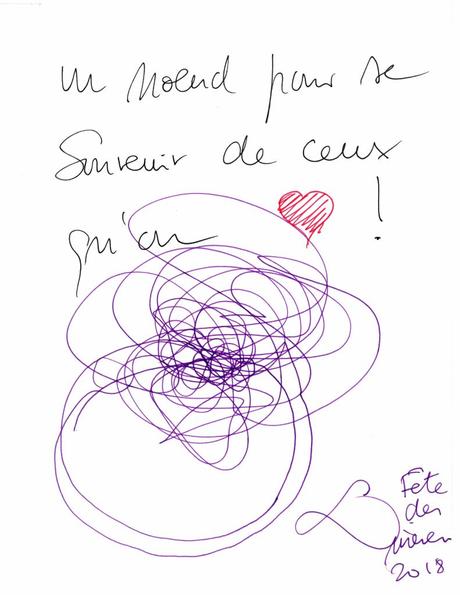 un noeud pour se
souvenir de ceux
qu'on !
Fête
des
mères
2018